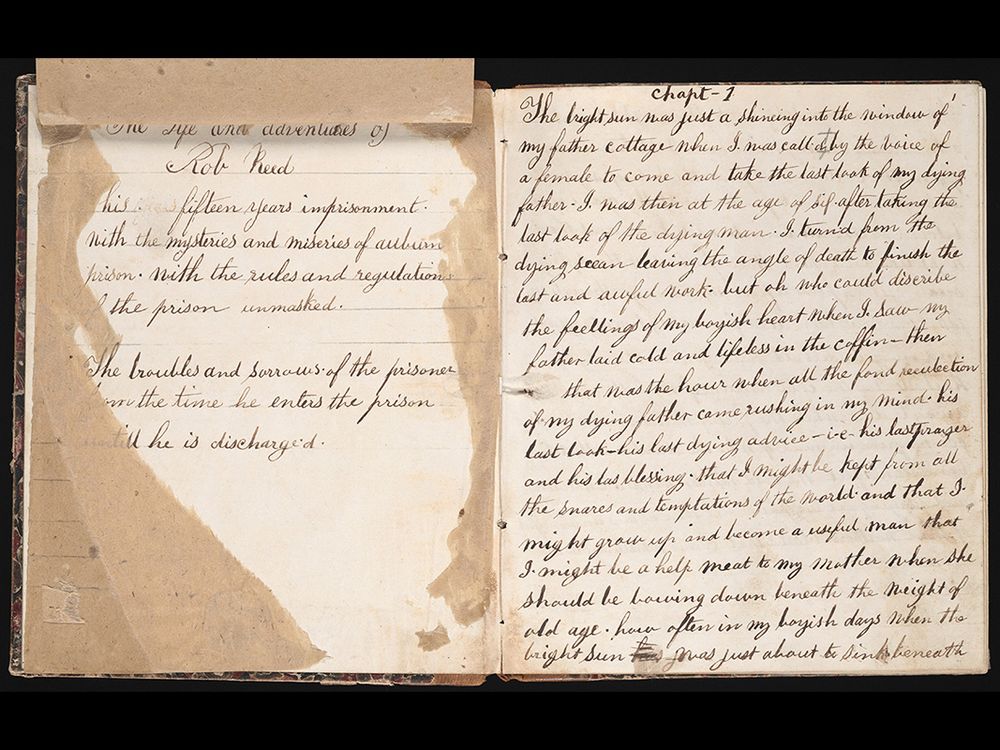 The Life and adventures of
Rob Reed
his fifteen years imprisonment.
With the mysteries and miseries of auburn
prison. With the rules and regulations
of the prison unmasked.
The troubles and sorrows of the prisoner
from the time he enters the prison
untill he is discharged.
Chapt-1
1
The bright sun was just a shineing into the window of
my father cottage when I was calld by the voice of
a female to come and take the last look of my dying
father - I was then at the age of six - after taking the
last look of the dying man. I turn'd from the
dying scean leaving the angle of death to finish the
last and awful work. but oh who could discribe
the feellings of my boyish heart when I saw my
father laid cold and lifeless in the coffin - then
that was the hour when all the fond recolection
of my dying father came rushing in my mind. his
last look - his last dying advice - i-e- his last prayer
and his las blessing. that I might be kept from all
the snares and temptations of the world. and that I.
might grow up and become a useful man that
I. might be a help meat to my mother when she
should be bowing down beneath the weight of
old age. how often in my boyish days when the
bright sun was just about to sink beneath